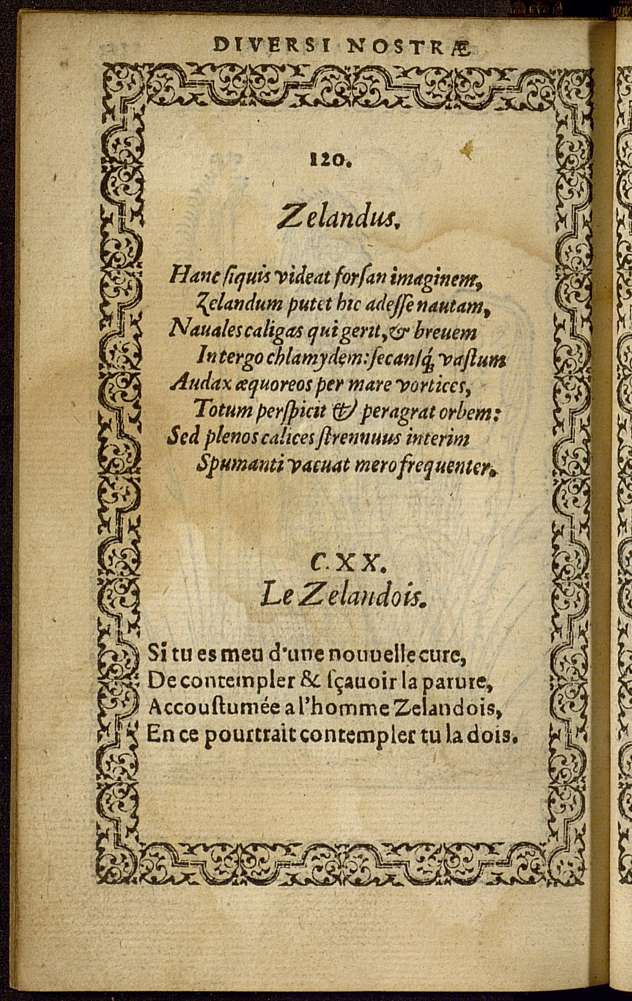 DIVERSI NOSTRÆ
120.
Zelandus.
Hanc ſiquis videat forſan imaginem,
Zelandum putet hic adeſſe nautam,
Nauales caligas qui gerit, & breuem
In tergo chlamydem: ſecanſq́, vaſtum
Audax æquoreos per mare vortices,
Totum perſpicit & peragrat orbem:
Sed plenos calices ſtrenuus interim
Spumanti vacuat mero frequenter.
C. XX.
Le Zelandois.
Si tu es meu d'une nouuelle cure,
De contempler & ſçauoir la parure,
Accouſtumée a l'homme Zelandois,
En ce pourtrait contempler tu la dois.